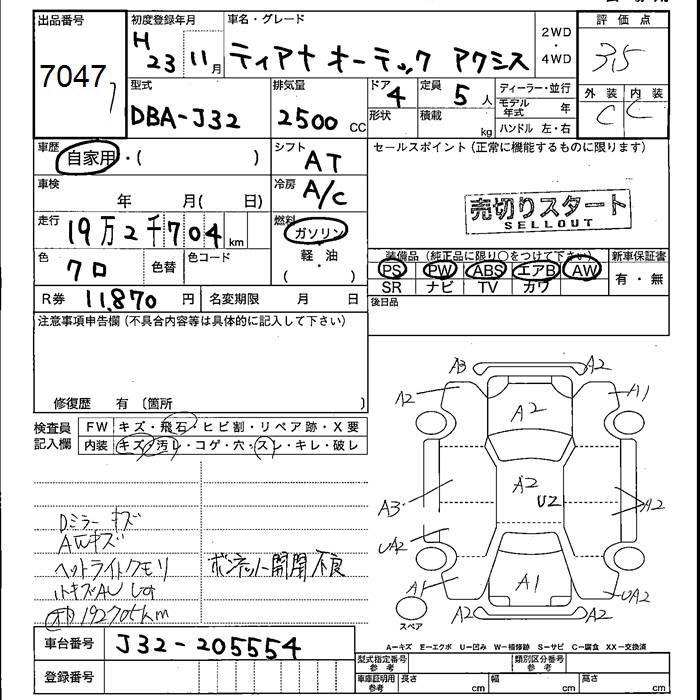 出品番号 初度登録年月 車名・グレード 2WD・4WD 評価点
7047 H23 11月 ティアナ オーテック アクシス 3.5
型式 排気量 ドア 定員 ディーラー・並行 外装 内装
DBA-J32 2500 CC 4 5人 モデル年式 年 C C
形状 積載 kg ハンドル 左・右
車歴 自家用・( ) シフト AT セールスポイント(正常に機能するものに限ります)
車検 年 月( 日) 冷房 A/C
売切りスタート
SELLOUT
走行 19万2千704km 燃料 ガソリン
軽・油
( ・ )
色 クロ 色替 色コード
装備品(純正品に限り○をつけて下さい) 新車保証書
PS PW ABS エアB AW 有・無
SR ナビ TV カワ
R券 11,870円 名変期限 月 日 後日品
注意事項申告欄(不具合内容等は具体的に記入して下さい)
修復歴 有〔箇所 〕
検査員記入欄 FW キズ・飛石・ヒビ割・リペア跡・X要
内装 キズ・汚レ・コゲ・穴・スレ・キレ・破レ
Dミラーキズ
AWキズ
ヘッドライトクモリ
ボンネット開閉不良
192705km
A3 A2
A2 A1
A2
A2
A3 U2 A2
UA2
A1 A1 UA2
A2 A2
スペア
A-キズ E-エクボ U-凹み W-補修跡 S-サビ C-腐食 XX-交換済
車台番号 J32-205554
型式指定番号 参考 類別区分番号 参考
登録番号 車庫証明用 参考 長さ cm 幅 cm 高さ cm